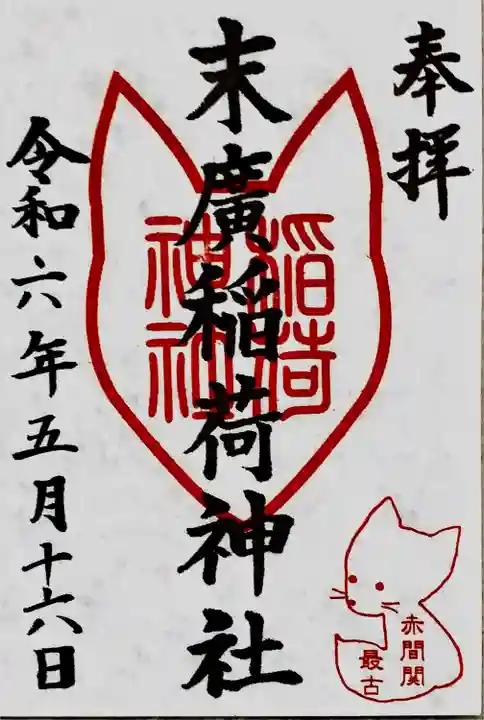 奉拝
末廣稲荷神社
稲荷
神社
令和六年五月十六日
赤間關
最古